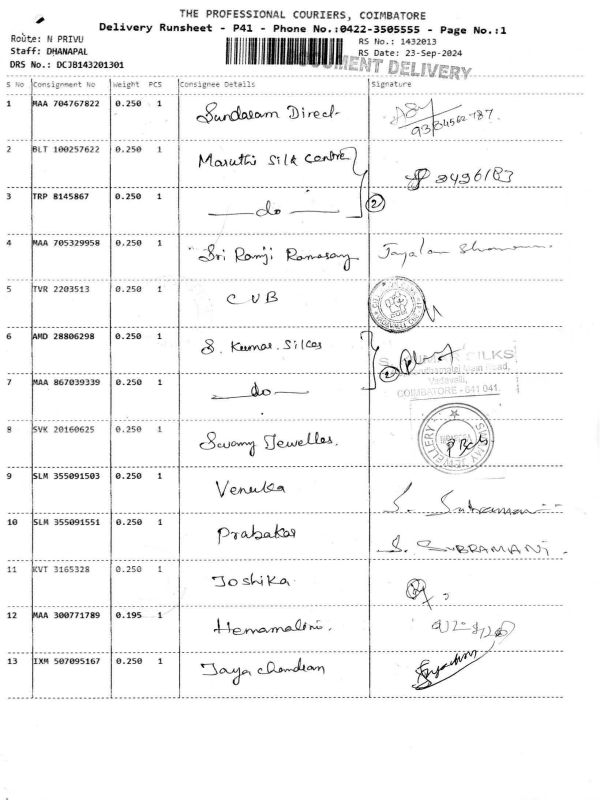 THE PROFESSIONAL COURIERS, COIMBATORE
Delivery Runsheet - P41 - Phone No.:0422-3505555 - Page No.:1
Route: N PRIVU
RS No.: 1432013
Staff: DHANAPAL
RS Date: 23-Sep-2024
DRS No.: DCJB143201301
DOCUMENT DELIVERY
S No Consignment No Weight PCS Consignee Details Signature
1 MAA 704767822 0.250 1 Sundaram Direct
2 BLT 100257622 0.250 1 Maruthi Silk Centre
3 TRP 8145867 0.250 1 do 2
4 MAA 705329958 0.250 1 Sri Ramji Ramasay
5 TVR 2203513 0.250 1 CUB
6 AMD 28806298 0.250 1 S. Kumar Silks
SILKS
7 MAA 867039339 0.250 1 do 2
Vadavalli,
COIMBATORE - 641 041.
8 SVK 20160625 0.250 1 Swamy Jewelles.
9 SLM 355091503 0.250 1 Venuka S. Subramani
10 SLM 355091551 0.250 1 Prabakar S. SUBRAMANI.
11 KVT 3165328 0.250 1 Joshika
12 MAA 300771789 0.195 1 Hemamalini.
13 IXM 507095167 0.250 1 Jaya chandran